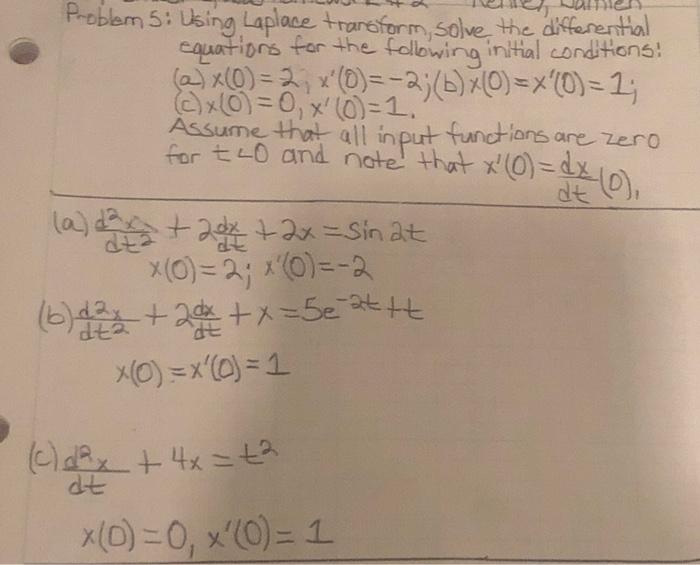 Problem 5: Using Laplace transform, solve the differential
equations for the following initial conditions:
(a) x(0) = 2, x'(0) = -2; (b) x(0) = x'(0) = 1;
(c) x(0) = 0, x'(0) = 1.
Assume that all input functions are zero
for t<0 and note that x'(0) = dx/dt (0),
(a) d²x/dt² + 2dx/dt + 2x = sin2t
x(0) = 2; x'(0) = -2
(b) d²x/dt² + 2dx/dt + x = 5e^-2t + t
x(0) = x'(0) = 1
(c) d²x/dt + 4x = t²
x(0) = 0, x'(0) = 1